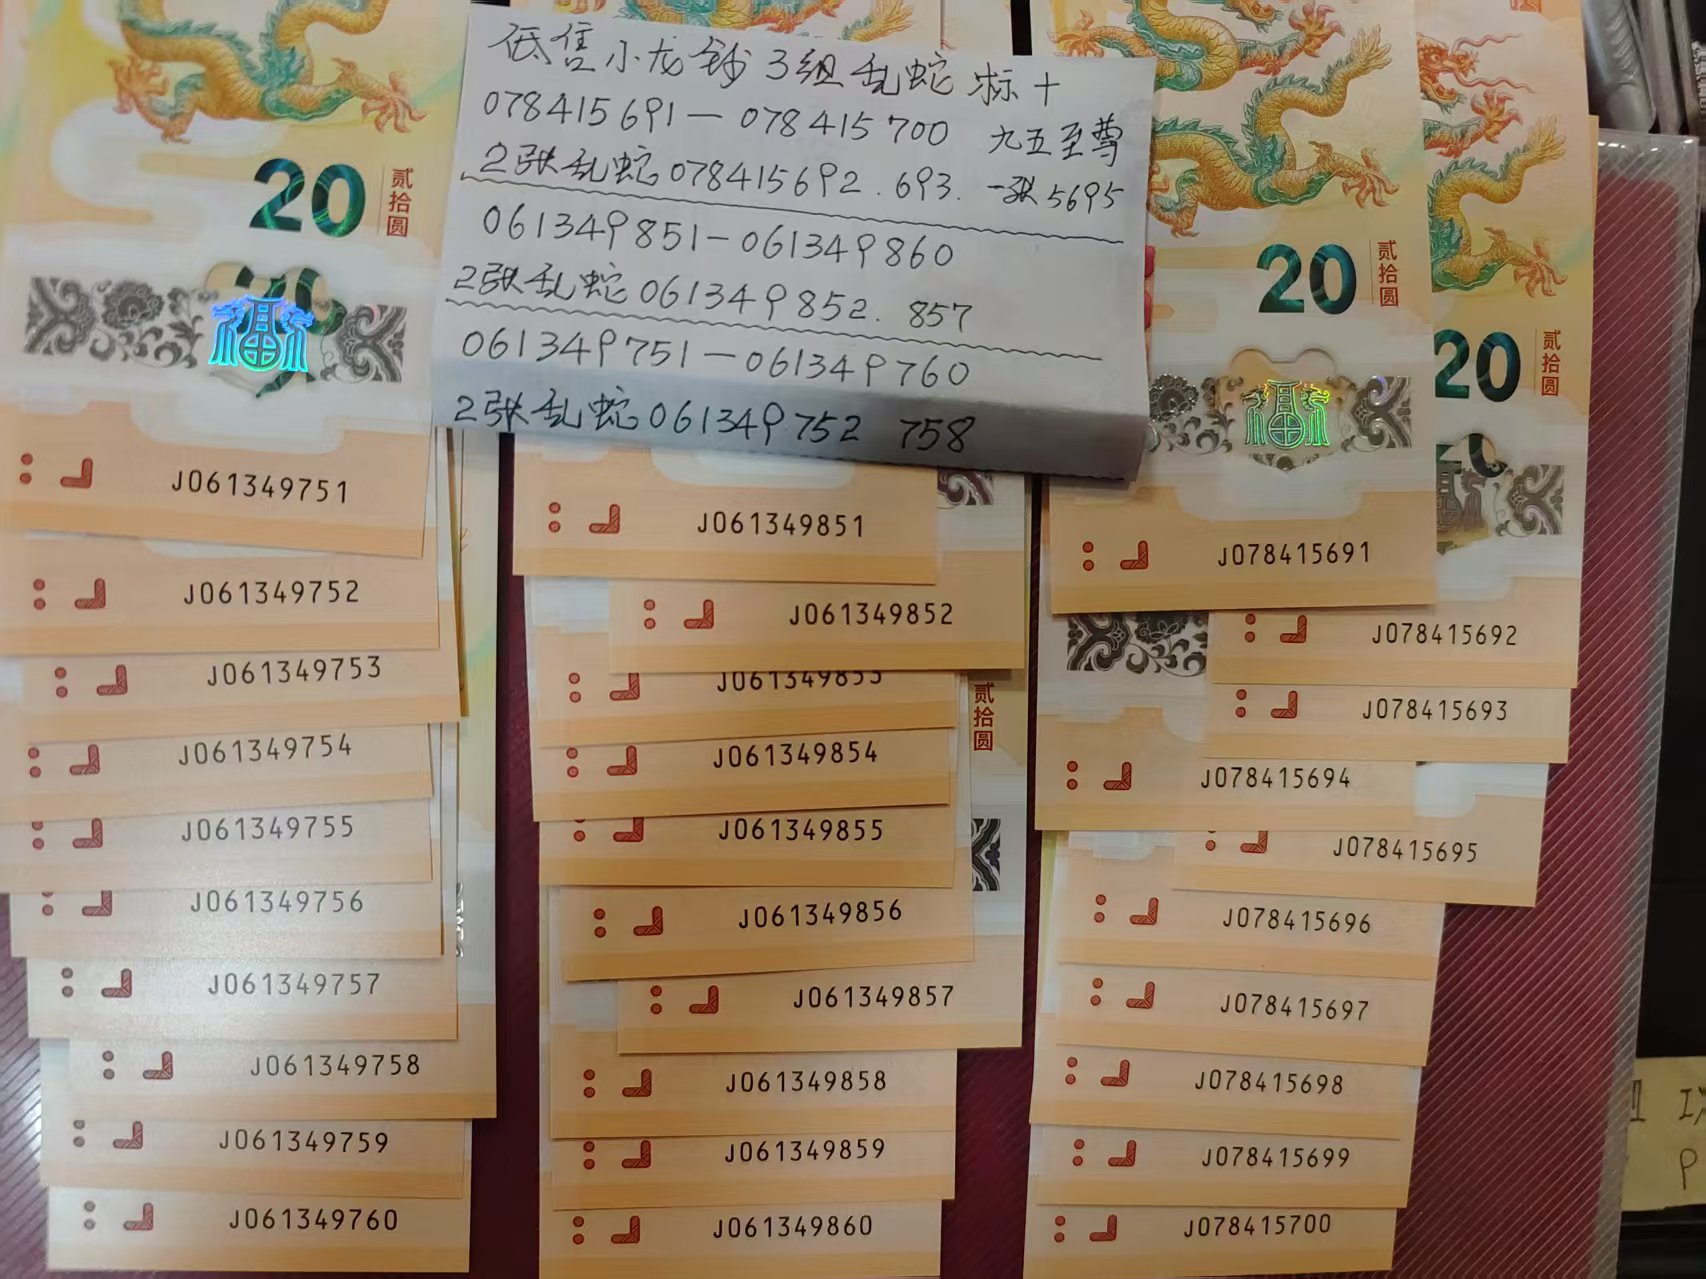 低售小龙钞3组乱蛇标十
078415691—078415700 九五至尊
2张乱蛇078415692.693. 一张5695
061349851—061349860
2张乱蛇061349852. 857
061349751—061349760
2张乱蛇061349752 758
20 贰拾圆
20
福
J061349751
J061349752
J061349753
J061349754
J061349755
J061349756
J061349757
J061349758
J061349759
J061349760
J061349851
J061349852
J061349853
贰拾圆
J061349854
J061349855
J061349856
J061349857
J061349858
J061349859
J061349860
20 贰拾圆
福
20 贰拾圆
20
J078415691
J078415692
J078415693
J078415694
J078415695
J078415696
J078415697
J078415698
J078415699
J078415700